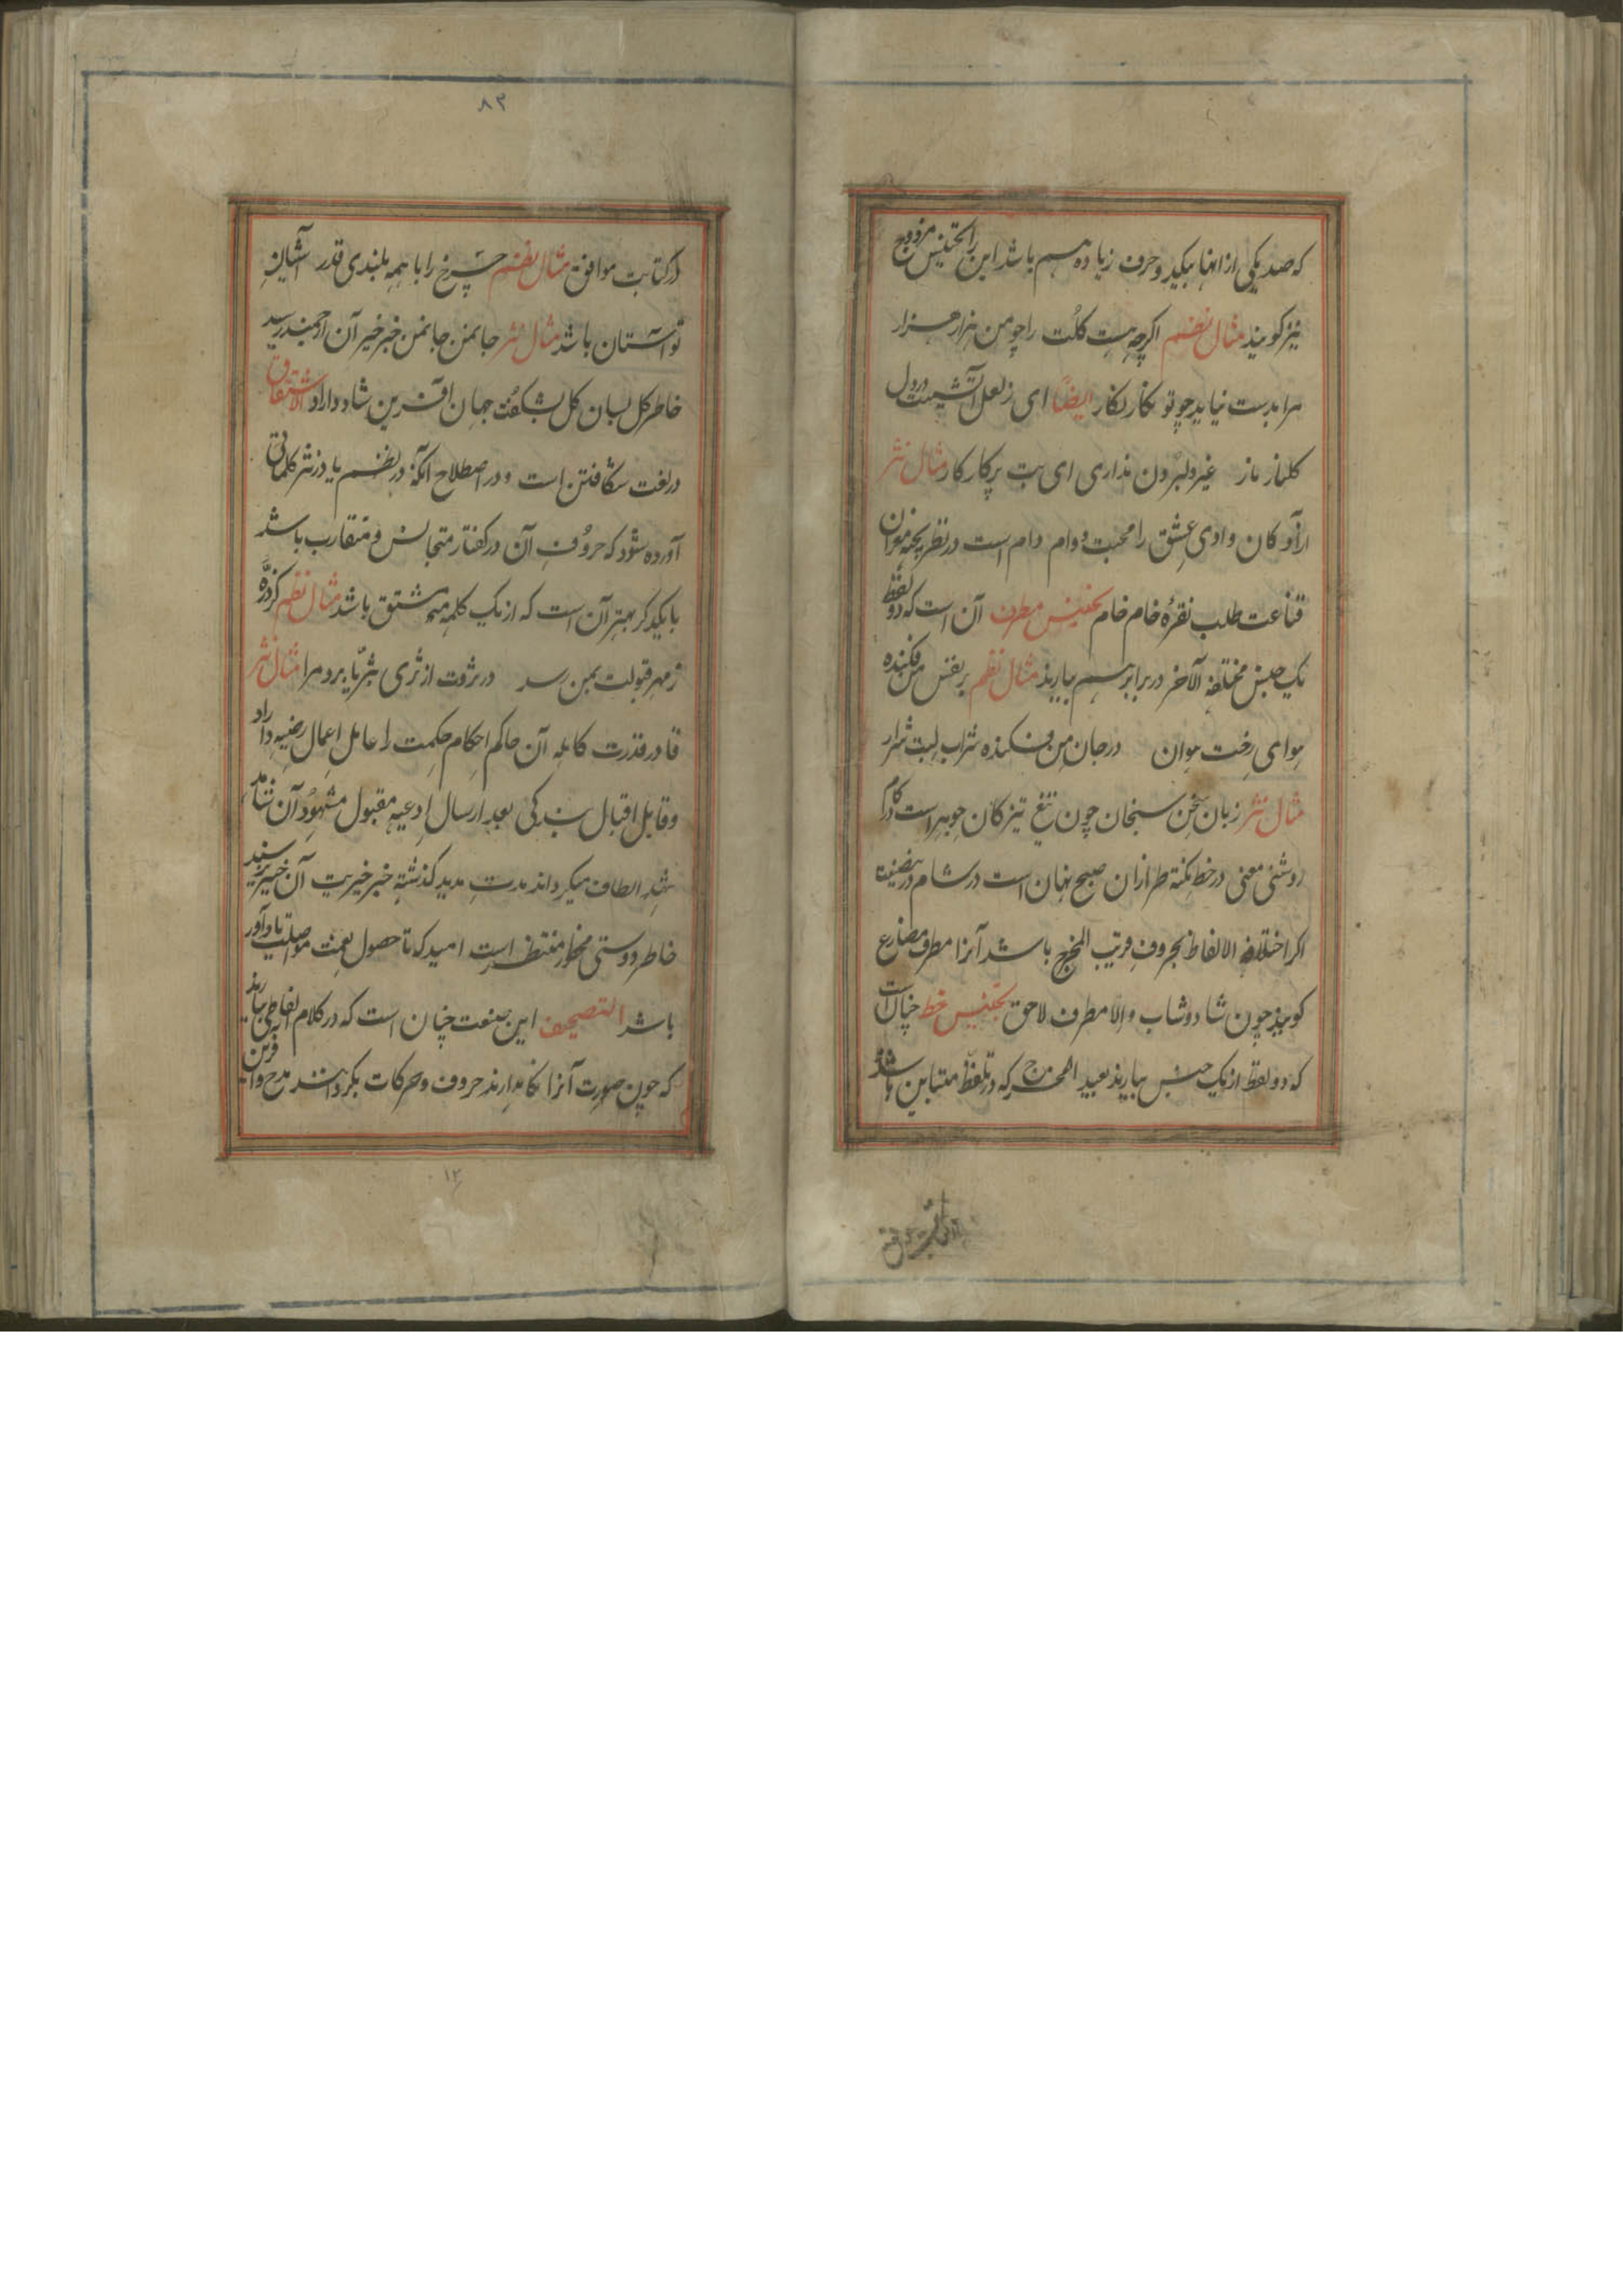 که صدر یکی از انها بیکدو حرف زیاده هم باشد این را تجنیس مزدوج
نیز کویند مثال نظم اکرچه هست کلت را چو من هزار هزار
مرا بدست نیاید چو تو نکار نکار ایضاً ای ز لعل آتشینت در دل
کلنار نار غیر دل بردن نداری ای بت پرکار کار مثال نثر
کان وادی عشق را محبت و وام دام است در نظر پخته مغزان
قناعت طلب نقرهٔ خام خام تجنیس مطرف آن است که دو لفظ
یک جنس مختلفة الآخر در برابر هم بیارند مثال نظم بر نفس من فکنده
هوای رخت هوان در جان من فکنده شراب لبت شرار
مثال نثر زبان سخن سنجان چون تیغ تیز کان جوهر است در کام
روشنی معنی در خط نکته طرازان صبح نهان است در شام در بصنعت
اکر اختلاف الالفاظ بحروف قریب المخرج باشد آنرا مطرف مضارع
کویند چون شاد و شاب والا مطرف لاحق تجنیس خط چنان است
که دو لفظ از یک جنس بیارند بعید المخرج که در تلفظ متباین باشد
در کتابت موافق
۸۲
در کتابت موافق مثال نظم چرخ را با همه بلندی قدر آشیان
تو آستان باشد مثال نثر جانمن جانمن خبر خیر آن ارجمند رسید
خاطر کل لسان کل بشکفت جهان آفرین شاد داراد الاشتقاق
در لغت شکافتن است و در اصطلاح آنکه در نظم یا در نثر کلماتی
آورده شود که حروف آن در کفتار متجانس و متقارب باشد
با یکدیکر بهتر آن است که از یک کلمه مشتق باشد مثال نظم کر ذرّه
ز مهر قبولت بمن رسد در ثروت از ثری بثریا برد مرا مثال نثر
قادر قدرت کامله آن حاکم احکام حکمت را عامل اعمال رضیه داراد
وقابل اقبال بندکی بعد ارسال ادعیه مقبول مشهود آن شاهد
الطاف میکرداند مدت مدید کذشته خبر خیریت آن
خاطر دوستی منتظر است امید که تا حصول نعمت مواصلت یادآور
باشد التصحیف این صنعت چنان است که در کلام الفاظی بیارند
که چون صورت آنرا نکاهدارند حروف و حرکات بکردانند مدح و آفرین
۱۲